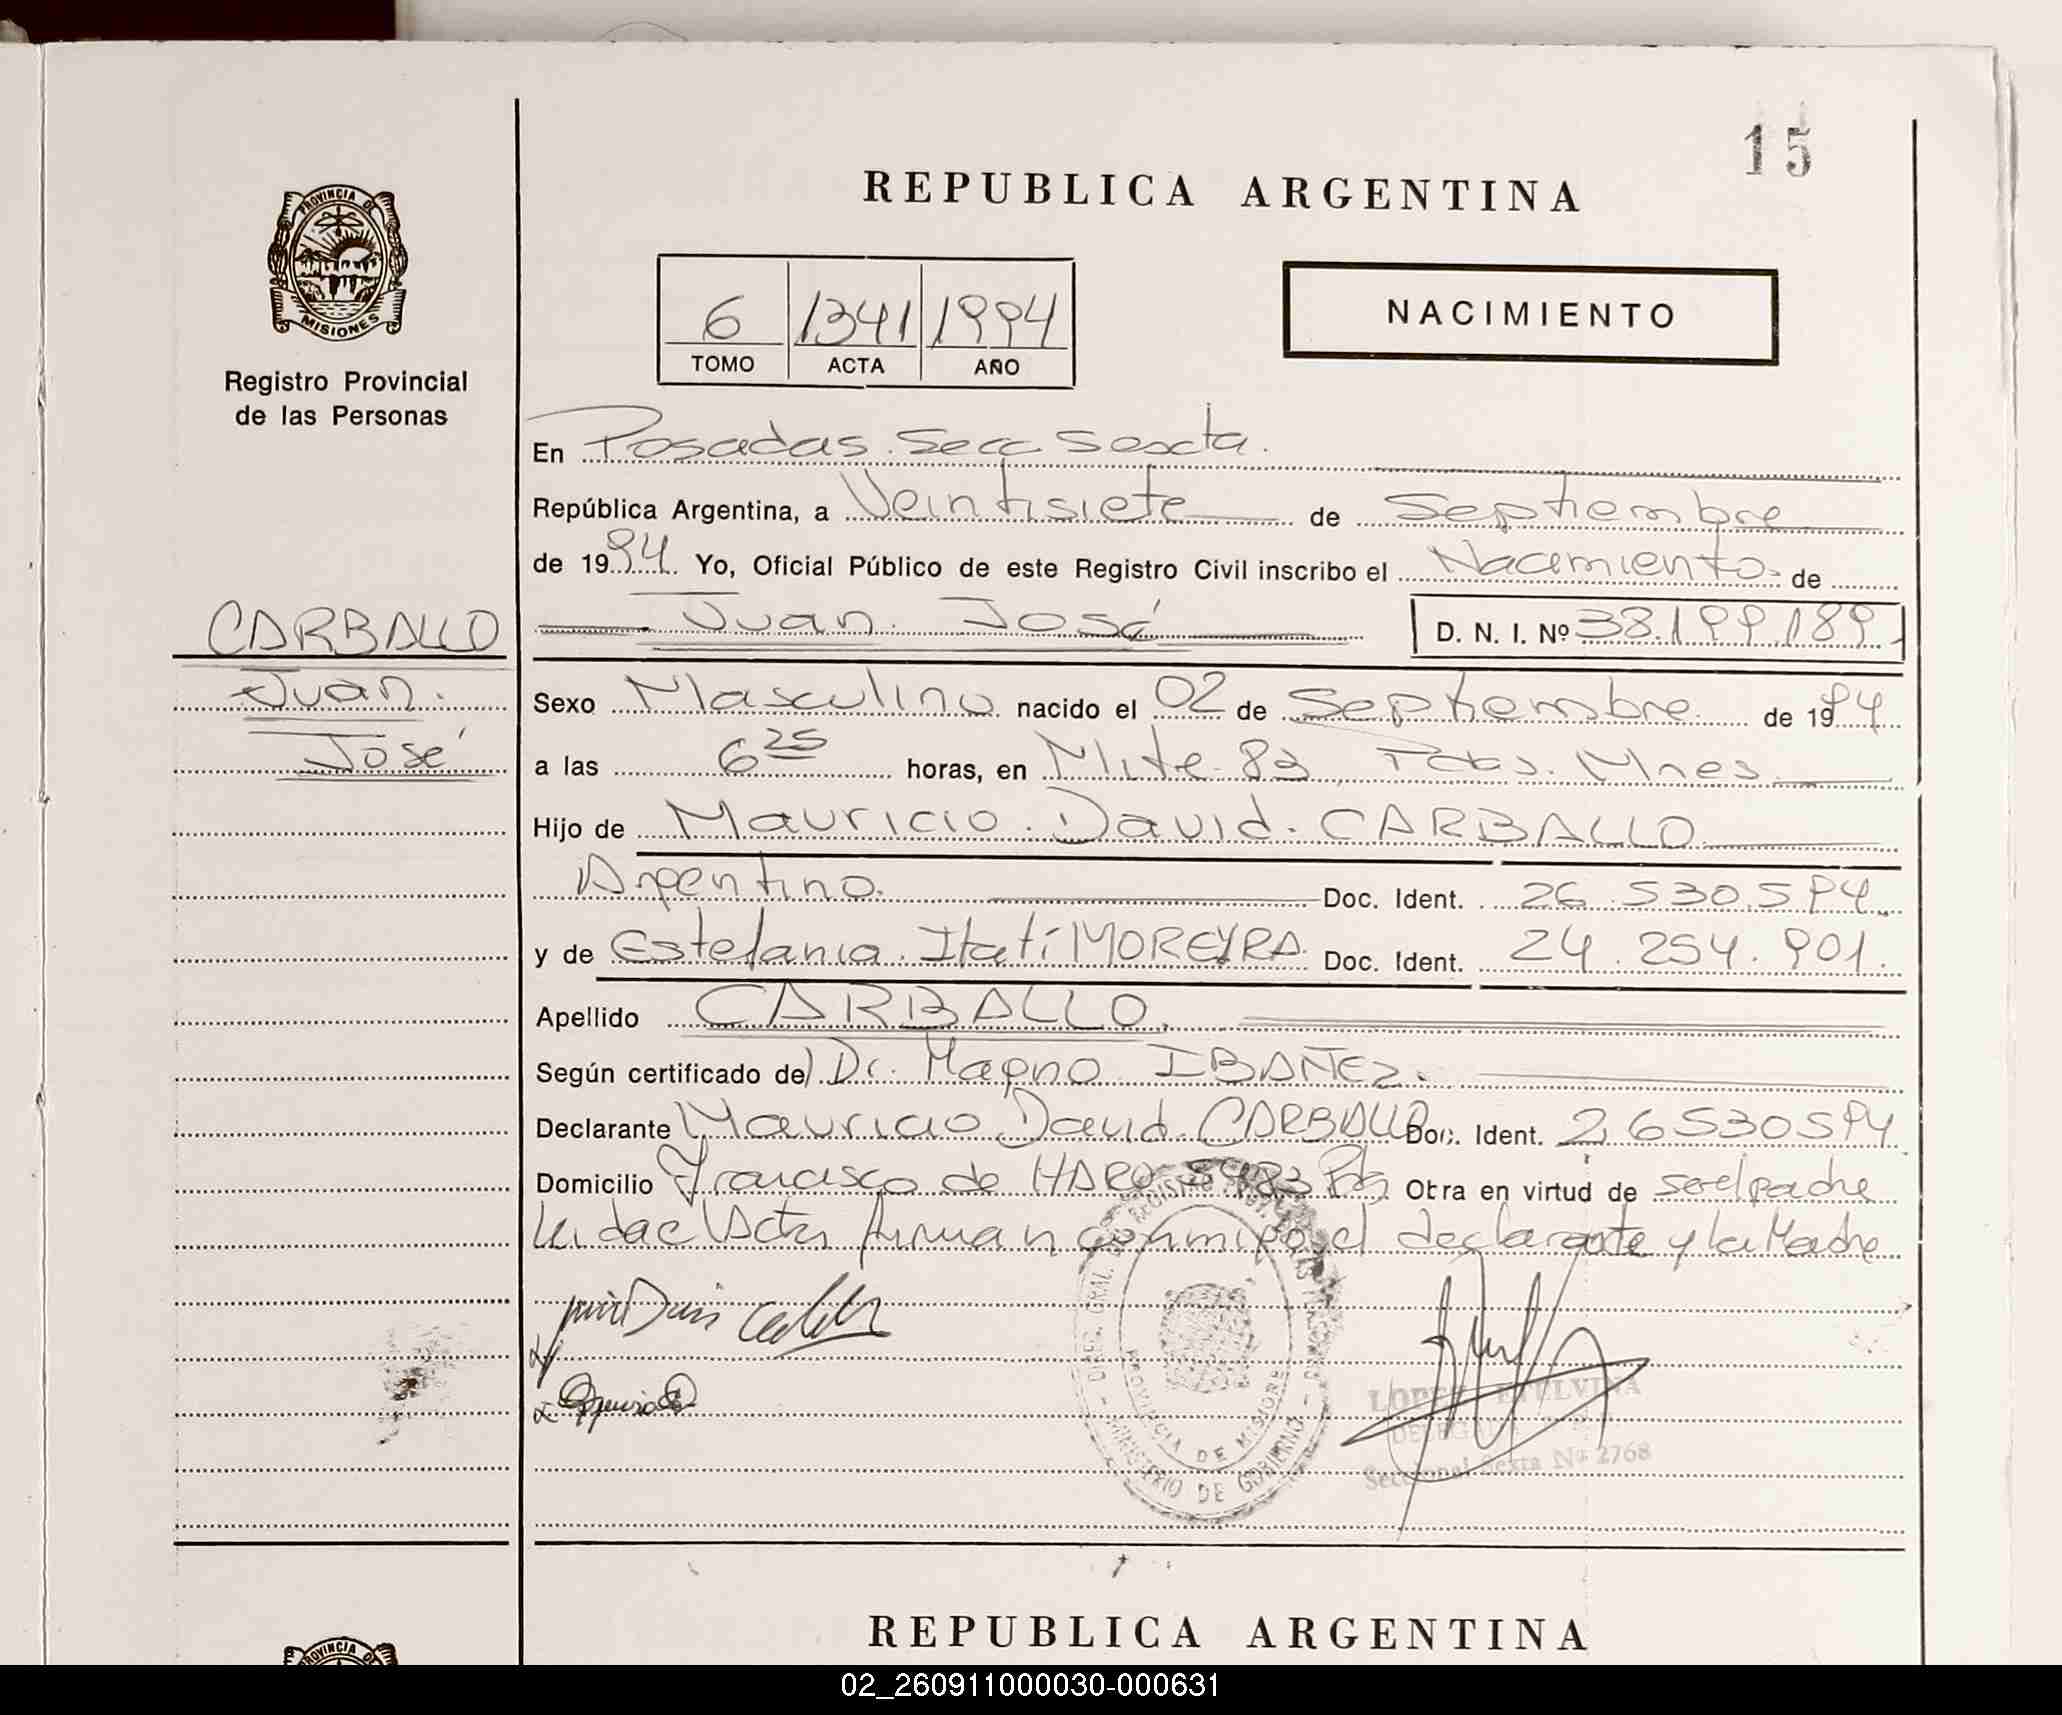 15
REPUBLICA ARGENTINA
PROVINCIA DE
MISIONES
Registro Provincial
de las Personas
6 1341 1994
TOMO ACTA AÑO
NACIMIENTO
En Posadas. Secc Sexta.
República Argentina, a Veintisiete de Septiembre
de 1994. Yo, Oficial Público de este Registro Civil inscribo el Nacimiento de
CARBALLO
Juan José D. N. I. Nº 38.199.189.
Juan.
José
Sexo Masculino nacido el 02 de Septiembre de 1994
a las 6 25 horas, en Mitre 83 Pdas. Mnes.
Hijo de Mauricio David CARBALLO
Argentino. Doc. Ident. 26.530.594.
y de Estefania Itatí MOREYRA Doc. Ident. 24.254.901.
Apellido CARBALLO.
Según certificado del Dr. Magno IBAÑEZ.
Declarante Mauricio David CARBALLO Doc. Ident. 26530594
Domicilio Francisco de HARO 5483 Pdas. Obra en virtud de ser el padre
Leida el Acta firman conmigo, el declarante y la Madre
DIREC. GRAL. DE REGISTRO PROV. DE LAS PERSONAS
PROVINCIA DE MISIONES
MINISTERIO DE GOBIERNO
LOPEZ ETELVINA
DELEGADA
Seccional Sexta Nº 2768
REPUBLICA ARGENTINA
PROVINCIA
02_260911000030-000631